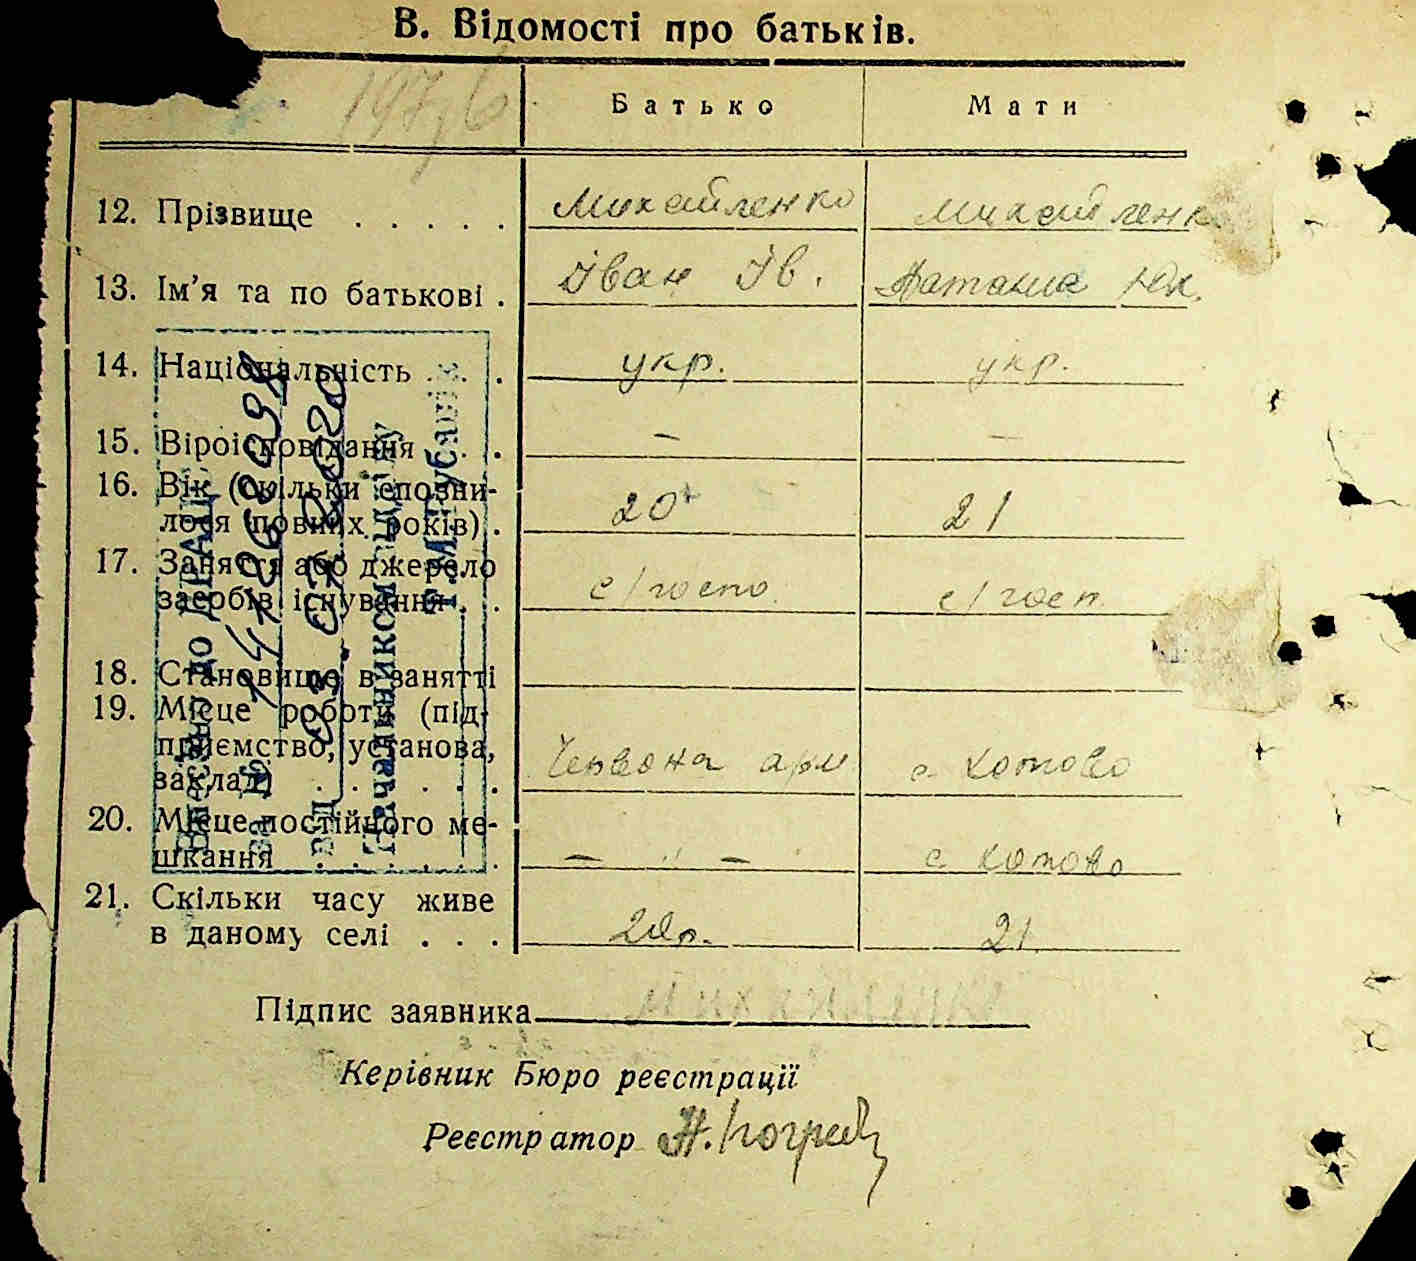 В. Відомості про батьків.
Батько Мати
12. Прізвище . . . . . Михайленко Михайленк
13. Ім'я та по батькові . Іван Ів. Наташа Юх.
14. Національність . . . укр. укр.
15. Віроісповідання . . . — —
16. Вік (скільки сповни-
лося повних років) . 20 21
17. Заняття або джерело
засобів існування . . с/госпо. с/госп.
18. Становище в занятті
19. Місце роботи (під-
приємство, установа,
заклад) . . . . . . Червона арм с Котово
20. Місце постійного ме-
шкання . . . . . . — „ — с Котово
21. Скільки часу живе
в даному селі . . . 20р. 21.
Підпис заявника Михайленко
Керівник Бюро реєстрації
Реєстратор
Внесено до ДРАЦС
за №
від 03.07.2020
Начальником відділу